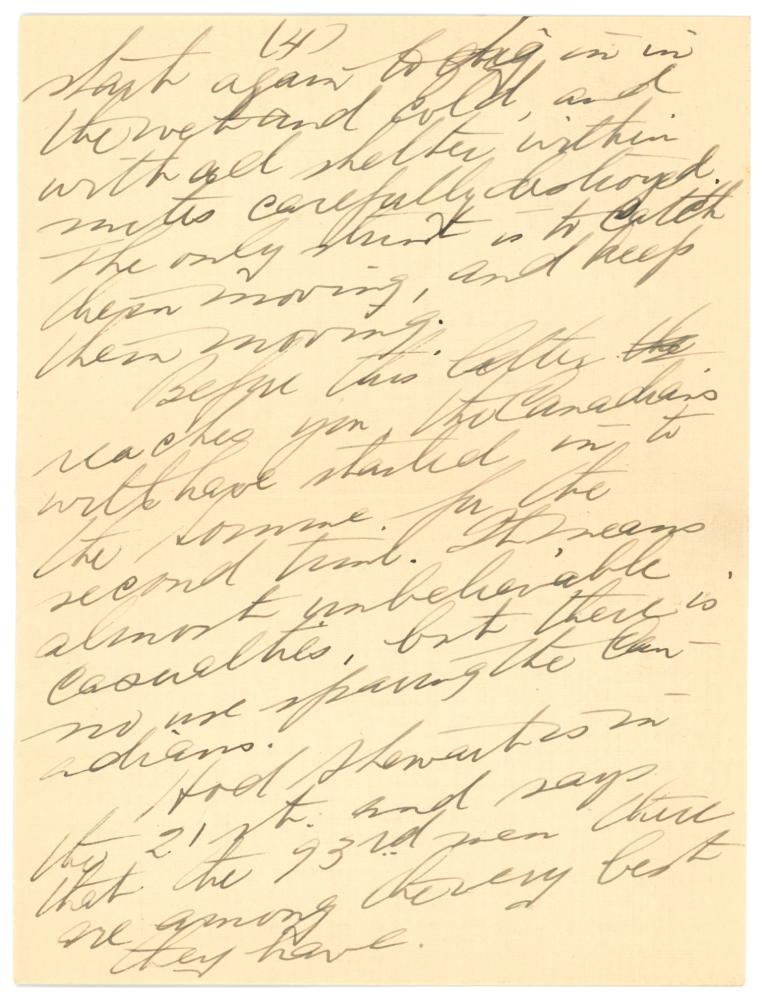 (4)
start again to dig in in
the wet and cold, and
with all shelter within
miles carefully destroyed.
The only stunt is to catch
them moving, and keep
them moving.
Before this letter the
reaches you, the Canadians
will have started in to
the Somme for the
second time. It means
almost unbelievable
casualties, but there is
no use sparing the Can-
adians.
Hod Stewart is in
the 21st. and says
that the 93rd men there
are among the very best
they have.